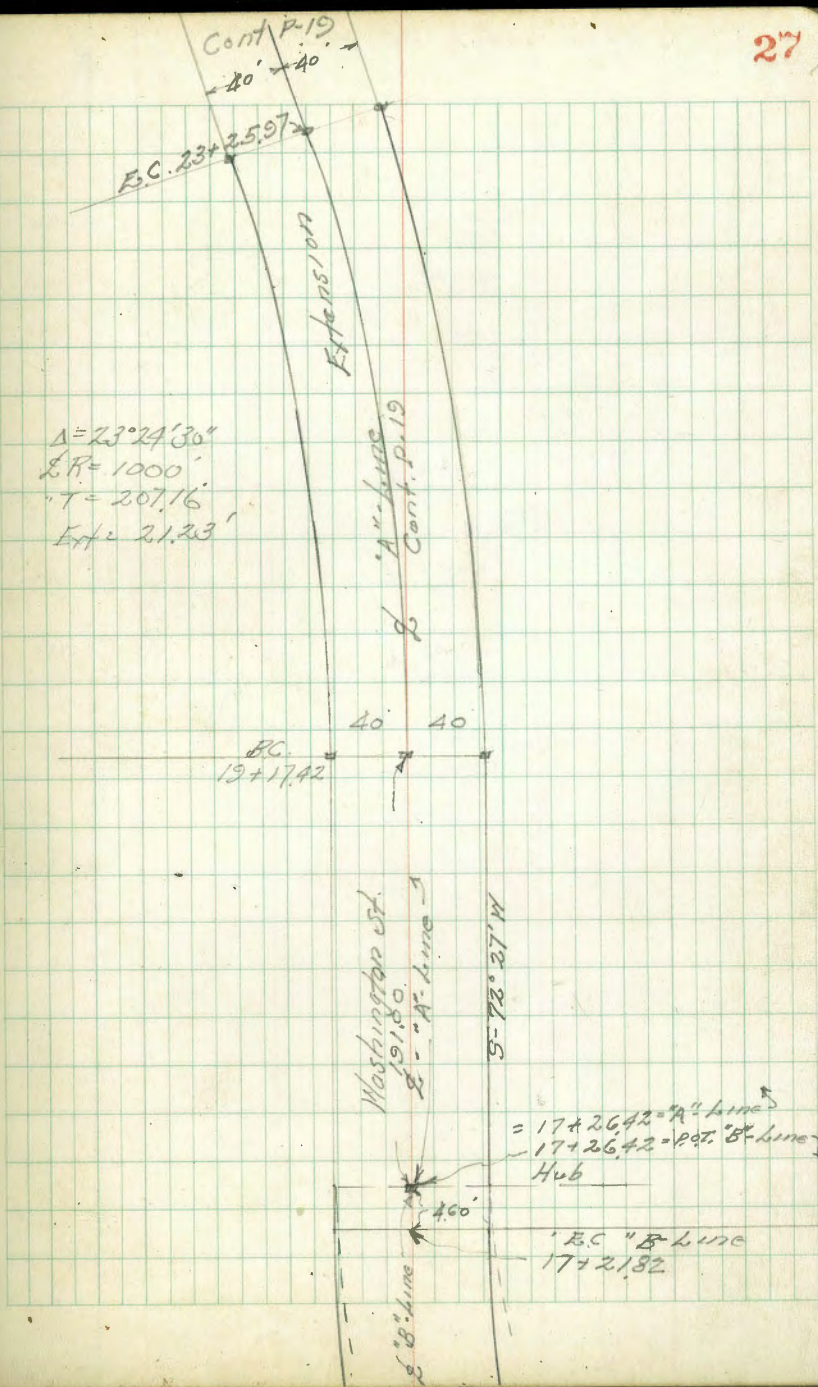 27
Cont P-19
40' 40'
E.C. 23+25.97
Extension
Δ=23°24'30"
℄ R= 1000'
" T= 207.16'
Ext= 21.23'
℄ "A"-Line
Cont. P.19
40 40
B.C.
19+17.42
Washington St.
191.80
℄ - "A"-Line
S-72°27'W
= 17+26.42="A"-Line
17+26.42=P.O.T. "B"-Line
Hub
4.60'
E.C "B-Line
17+21.82
℄ "B"-Line